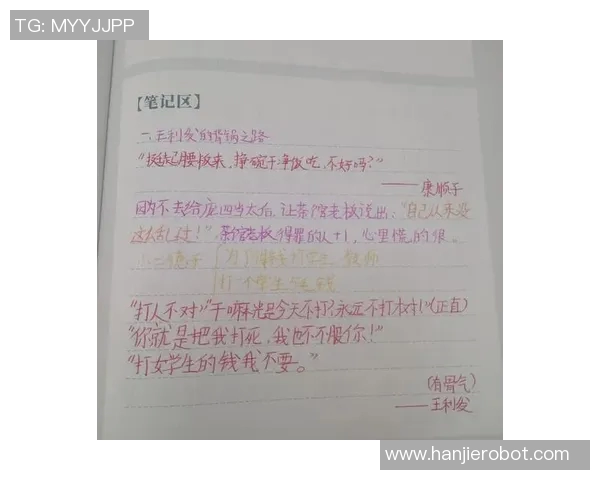 TG: MYYJJPP
【笔记区】
一、王利发的背锅之路
"挺起腰板来，挣碗干净饭吃，不好吗？"
——康顺子
因为不去给庞四当太后，让茶馆老板说出："自己从来没
这么乱过！"茶馆老板得罪的人+1，心里慌的很。
二德子 为了 钱 打学生 教师
打一个学生 钱
"打人不对！""干嘛光是今天不打？永远不打才对！"(正直)
"你就是把我打死，我也不服你！"
"打女学生的钱我不要。"
(有骨气)
——王利发
www.hanjierobot.com